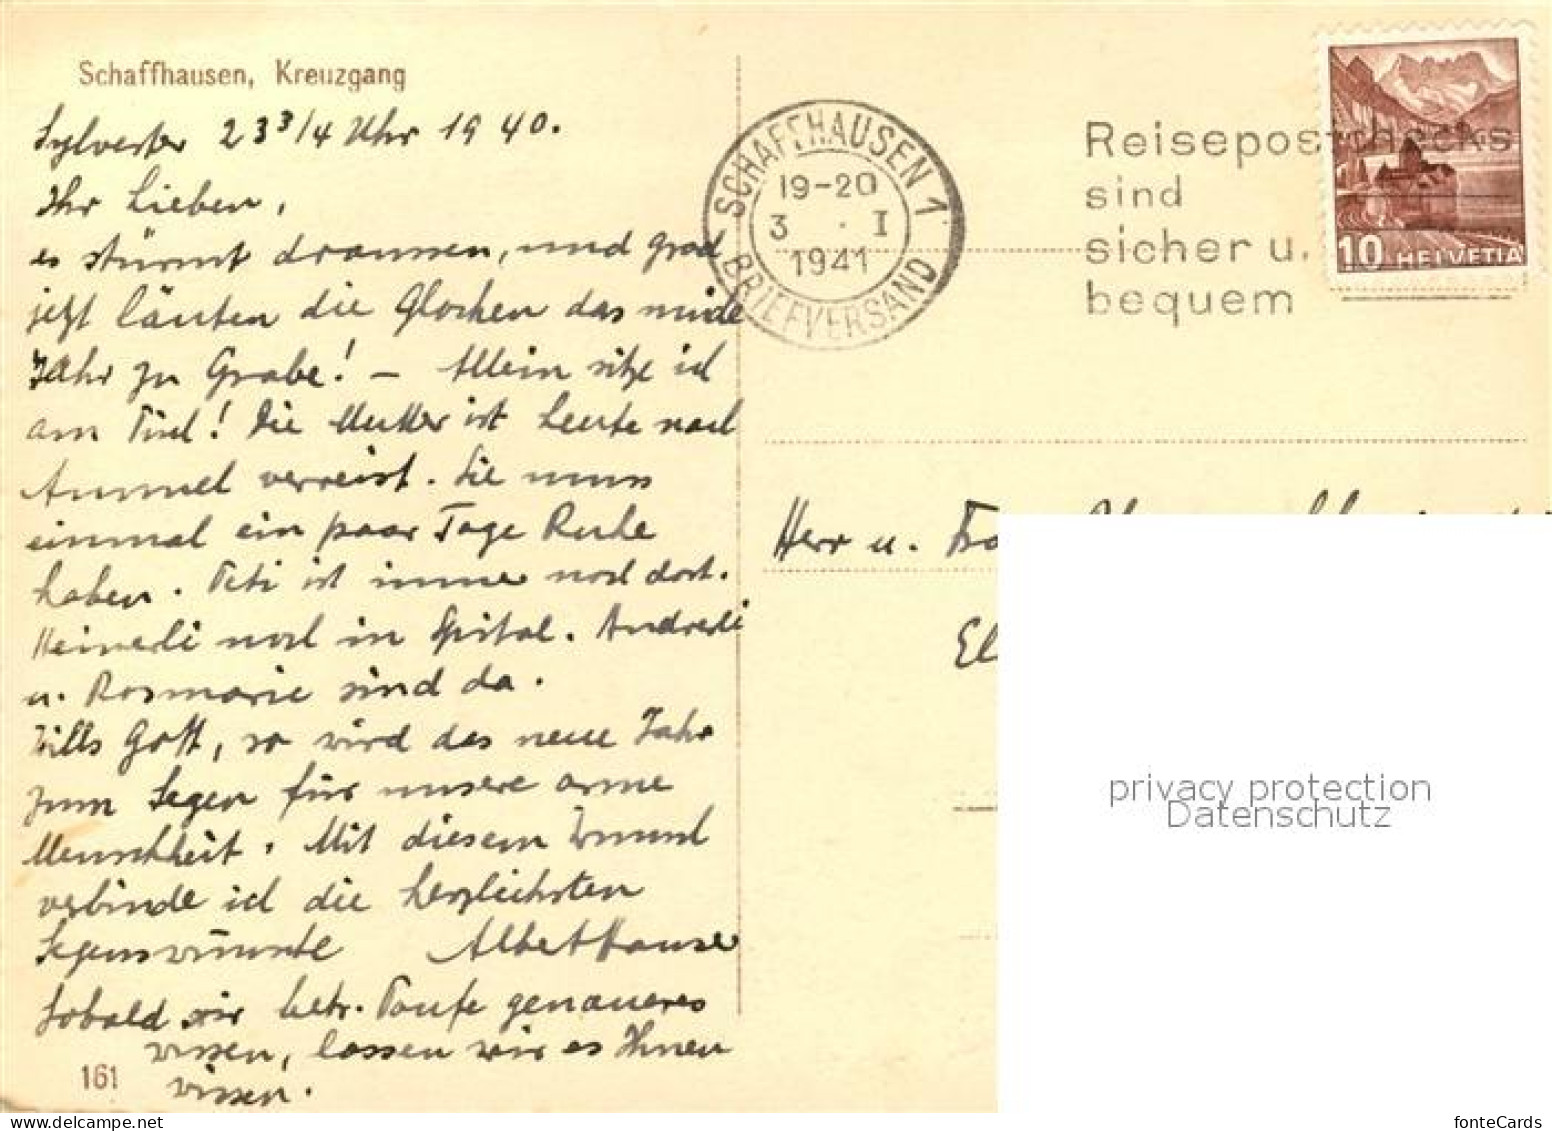 Schaffhausen, Kreuzgang
Sylvester 23 3/4 Uhr 1940.
Ihr Lieben,
es stürmt draussen, und grad
jetzt läuten die Glocken das müde
Jahr zu Grabe! – Allein sitze ich
am Tisch! Die Mutter ist heute nach
verreist. Sie muss
einmal ein paar Tage Ruhe
haben. Peti ist immer noch dort.
Heinerli noch im Spital. Andresli
u. Rosmarie sind da.
Wills Gott, so wird das neue Jahr
zum Segen für unsere arme
Menschheit. Mit diesem Wunsch
verbinde ich die herzlichsten
Segenswünsche Albert Hauser
Sobald wir betr. Taufe genaueres
wissen, lassen wir es Ihnen
wissen.
161
SCHAFFHAUSEN 1
19-20
3 . I
1941
BRIEFVERSAND
Reisepostchecks
sind
sicher u.
bequem
10 HELVETIA
Herr u.
privacy protection
Datenschutz
fonteCards